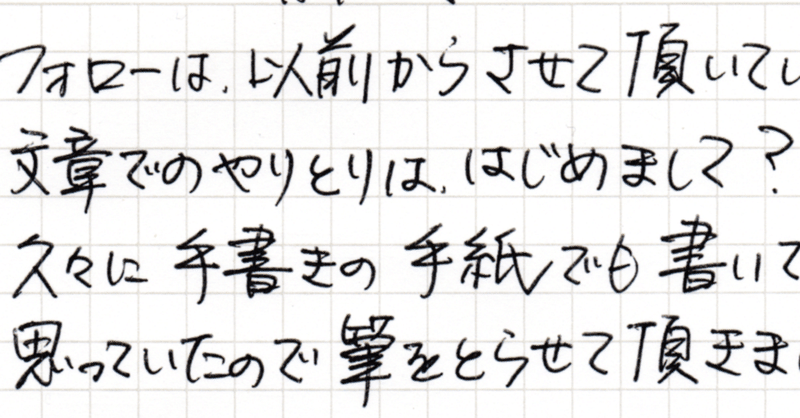 フォローは、以前からさせて頂いてい
文章でのやりとりは、はじめまして？
久々に手書きの手紙でも書いて
思っていたので筆をとらせて頂きま